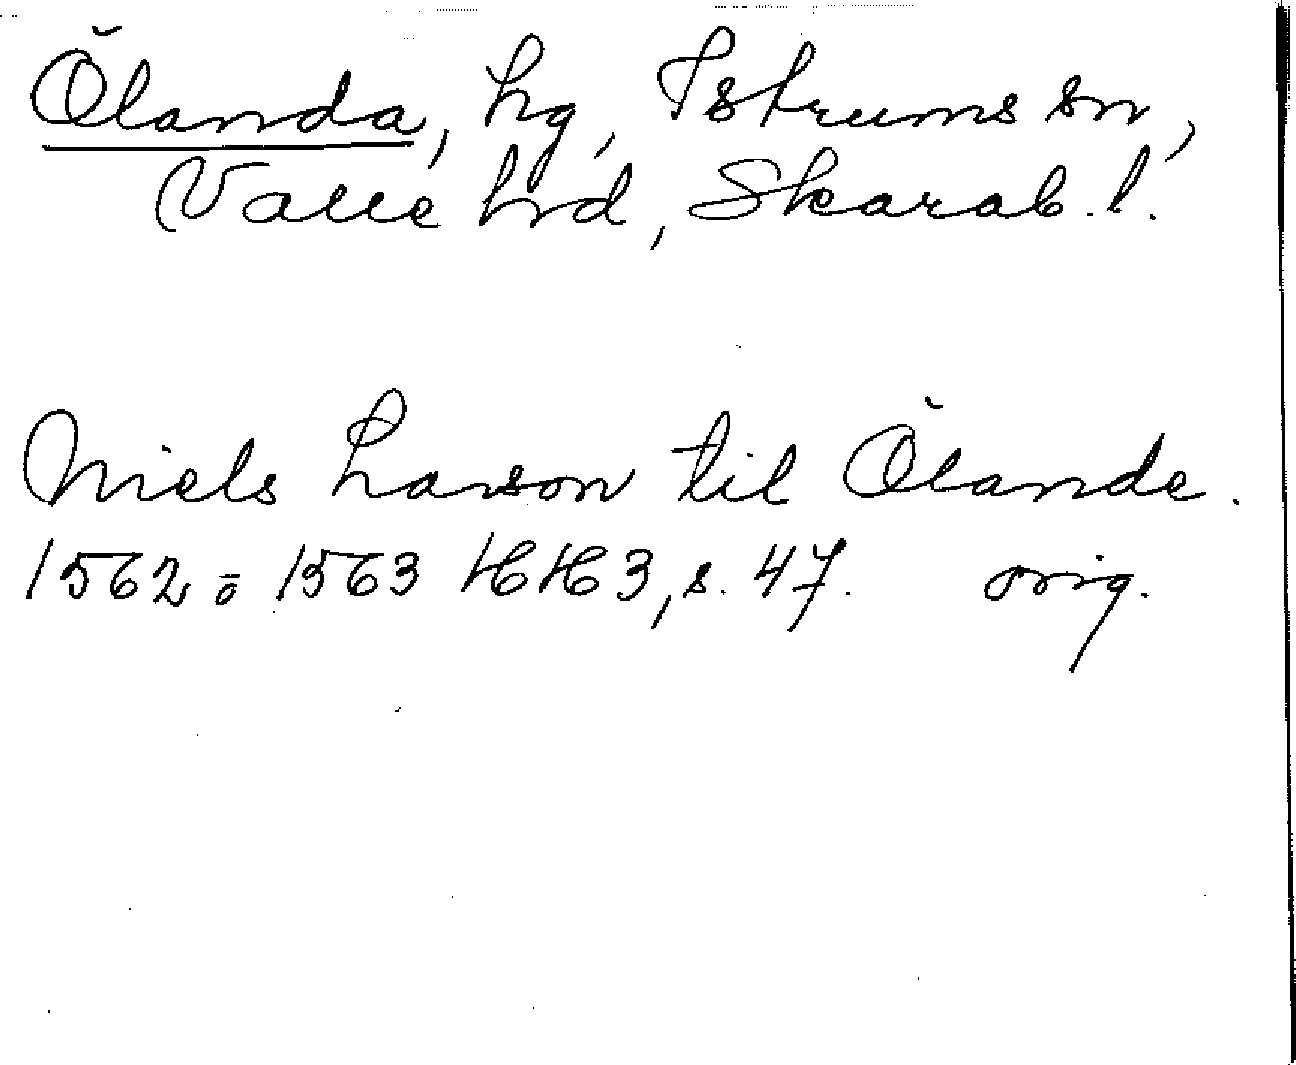 Ölanda, hg, Istrums sn,
Valle hd, Skarab. l.
Niels Larson til Ölande.
1562 ō 1563 HH 3, s. 47. orig.